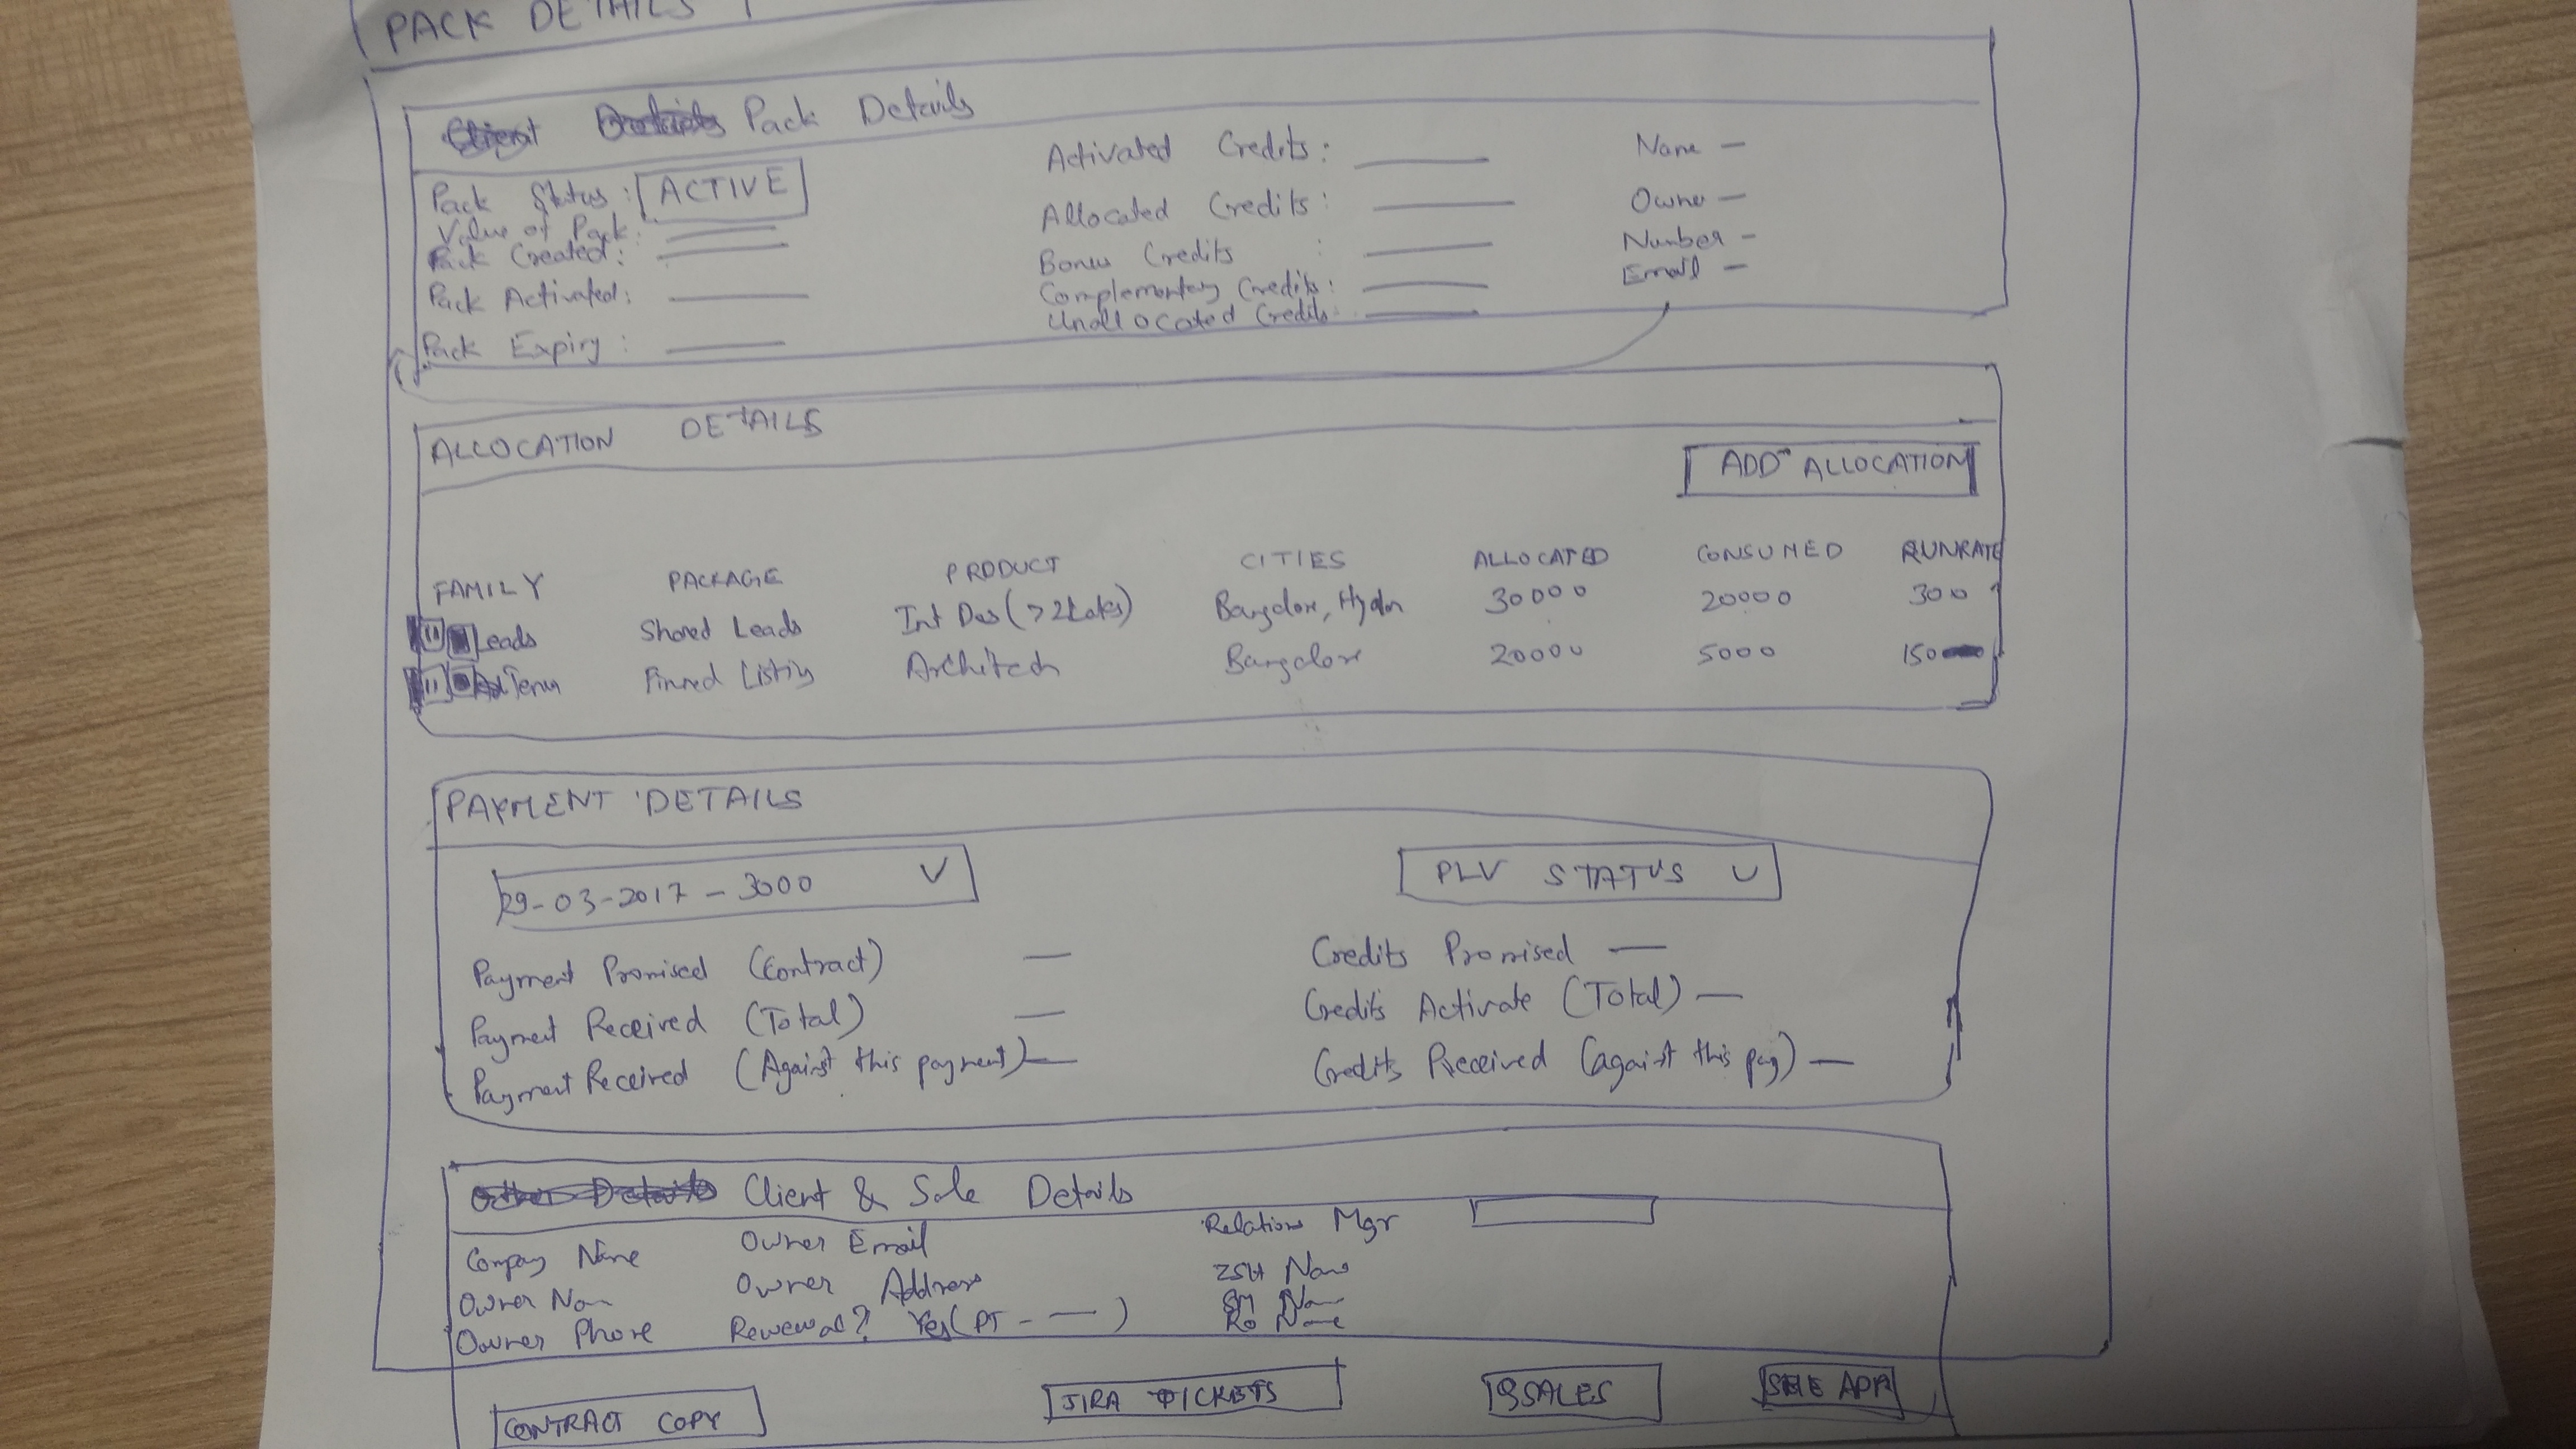 PACK DETAILS
Pack Details
Pack Status : ACTIVE
Value of Pack :
Pack Created :
Pack Activated :
Pack Expiry :
Activated Credits :
Allocated Credits :
Bonus Credits :
Complementary Credits :
Unallocated Credits
Name —
Owner —
Number —
Email —
ALLOCATION DETAILS
ADD ALLOCATION
FAMILY PACKAGE PRODUCT CITIES ALLOCATED CONSUMED RUNRATE
Leads Shared Leads Int Des (>2Laks) Bangalore, Hyder 30000 20000 300
Term Pinned Listing Architech Bangalore 20000 5000 150
PAYMENT DETAILS
29-03-2017 - 3000
PLV STATUS
Payment Promised (Contract) —
Payment Received (Total) —
Payment Received (Against this payment) —
Credits Promised —
Credits Activate (Total) —
Credits Received (against this pay) —
Client & Sale Details
Company Name
Owner Nam
Owner Phone
Owner Email
Owner Address
Renewal? Yes (PT - — )
Relation Mgr
ZSH Name
SM Name
Ro Name
CONTRACT COPY
JIRA TICKETS
SALES